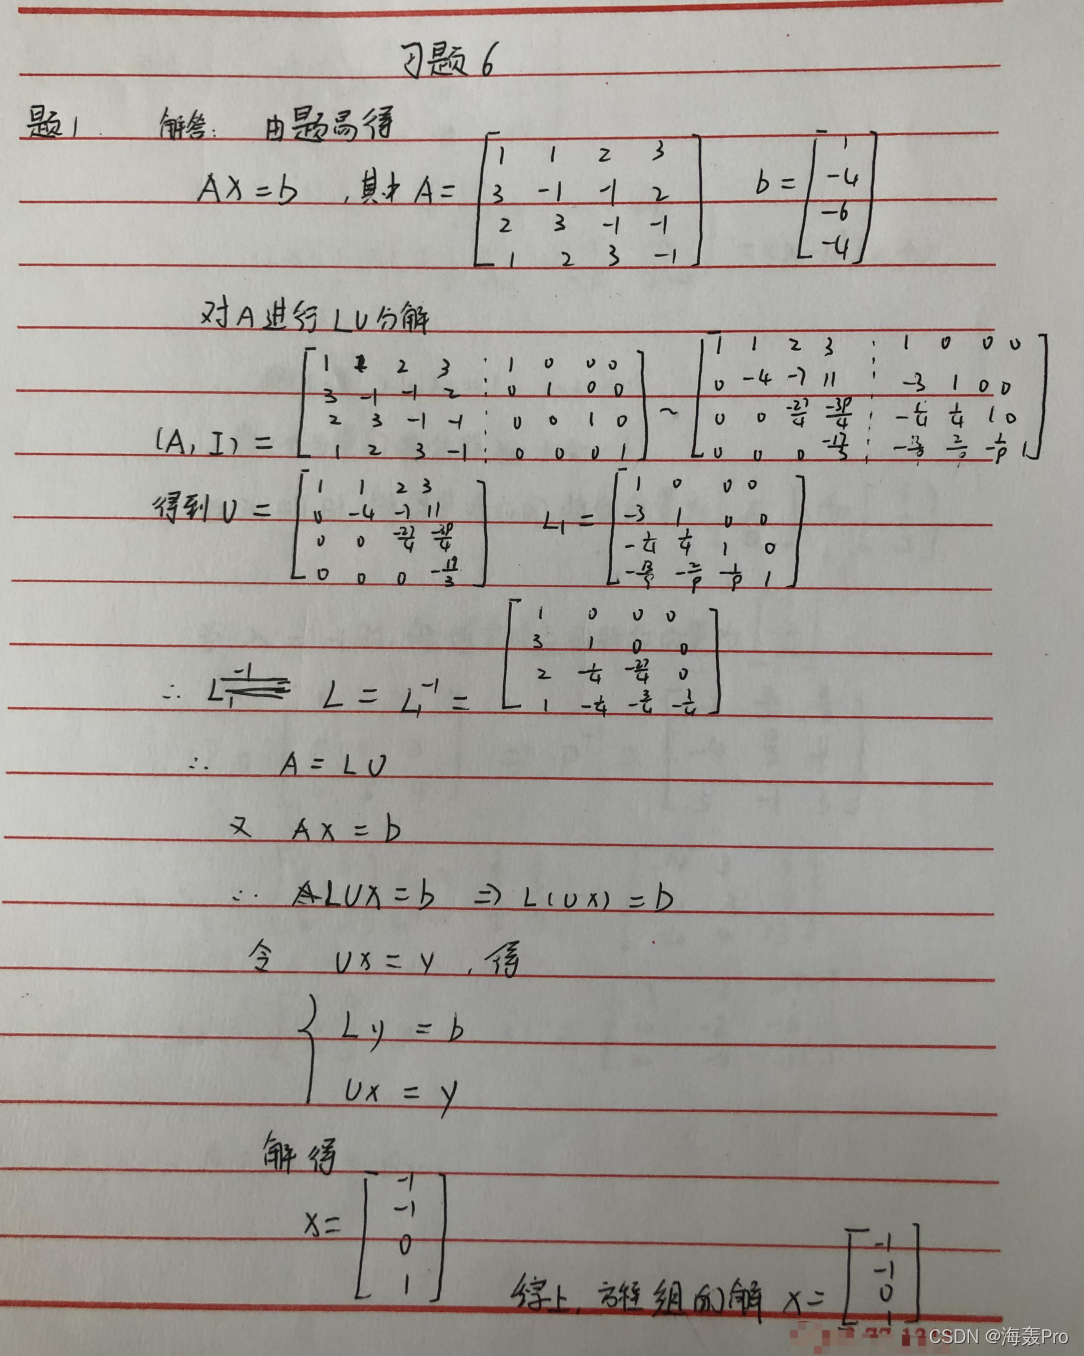 习题6
题1 解答: 由题易得
AX=b ,其中A= [1 1 2 3; 3 -1 -1 2; 2 3 -1 -1; 1 2 3 -1] b= [1; -4; -6; -4]
对A进行LU分解
(A, I) = [1 1 2 3 ⋮ 1 0 0 0; 3 -1 -1 2 ⋮ 0 1 0 0; 2 3 -1 -1 ⋮ 0 0 1 0; 1 2 3 -1 ⋮ 0 0 0 1] ~ [1 1 2 3 ⋮ 1 0 0 0; 0 -4 -7 11 ⋮ -3 1 0 0; 0 0 -27/4 -39/4 ⋮ -1/4 1/4 1 0; 0 0 0 -17/3 ⋮ 1]
得到U = [1 1 2 3; 0 -4 -7 11; 0 0 -27/4 -39/4; 0 0 0 -17/3] L₁ = [1 0 0 0; -3 1 0 0; -1/4 1/4 1 0; -13/9 -2/9 -1/9 1]
∴ L = L₁⁻¹ = [1 0 0 0; 3 1 0 0; 2 -1/4 -27/4 0; 1 -1/4 -3/4 -3/4]
∴ A = LU
又 AX = b
∴ LUX = b ⇒ L(UX) = b
令 UX = y ,得
{ Ly = b
UX = y
解得
X= [-1; -1; 0; 1]
综上,方程组的解 X= [-1; -1; 0; 1]
CSDN @海轰Pro